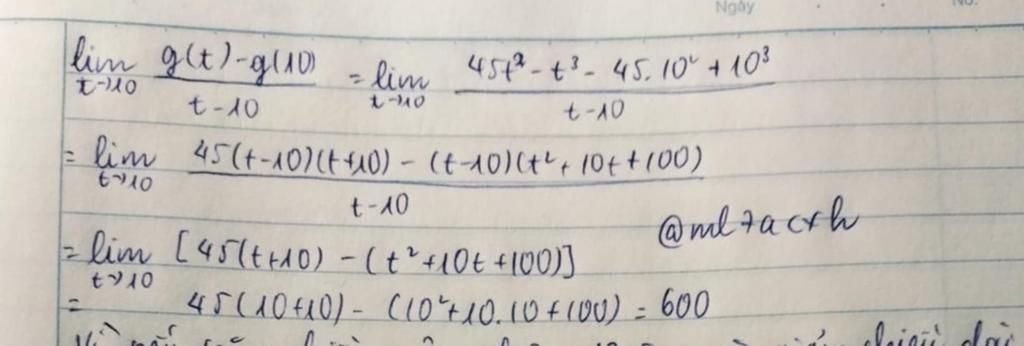 Ngày
No.
lim t→10 g(t)-g(10) / t-10 = lim t→10 45t² - t³ - 45.10² + 10³ / t-10
= lim t→10 45(t-10)(t+10) - (t-10)(t² + 10t + 100) / t-10
@ml7acxh
= lim t→10 [45(t+10) - (t²+10t+100)]
= 45(10+10) - (10²+10.10+100) = 600